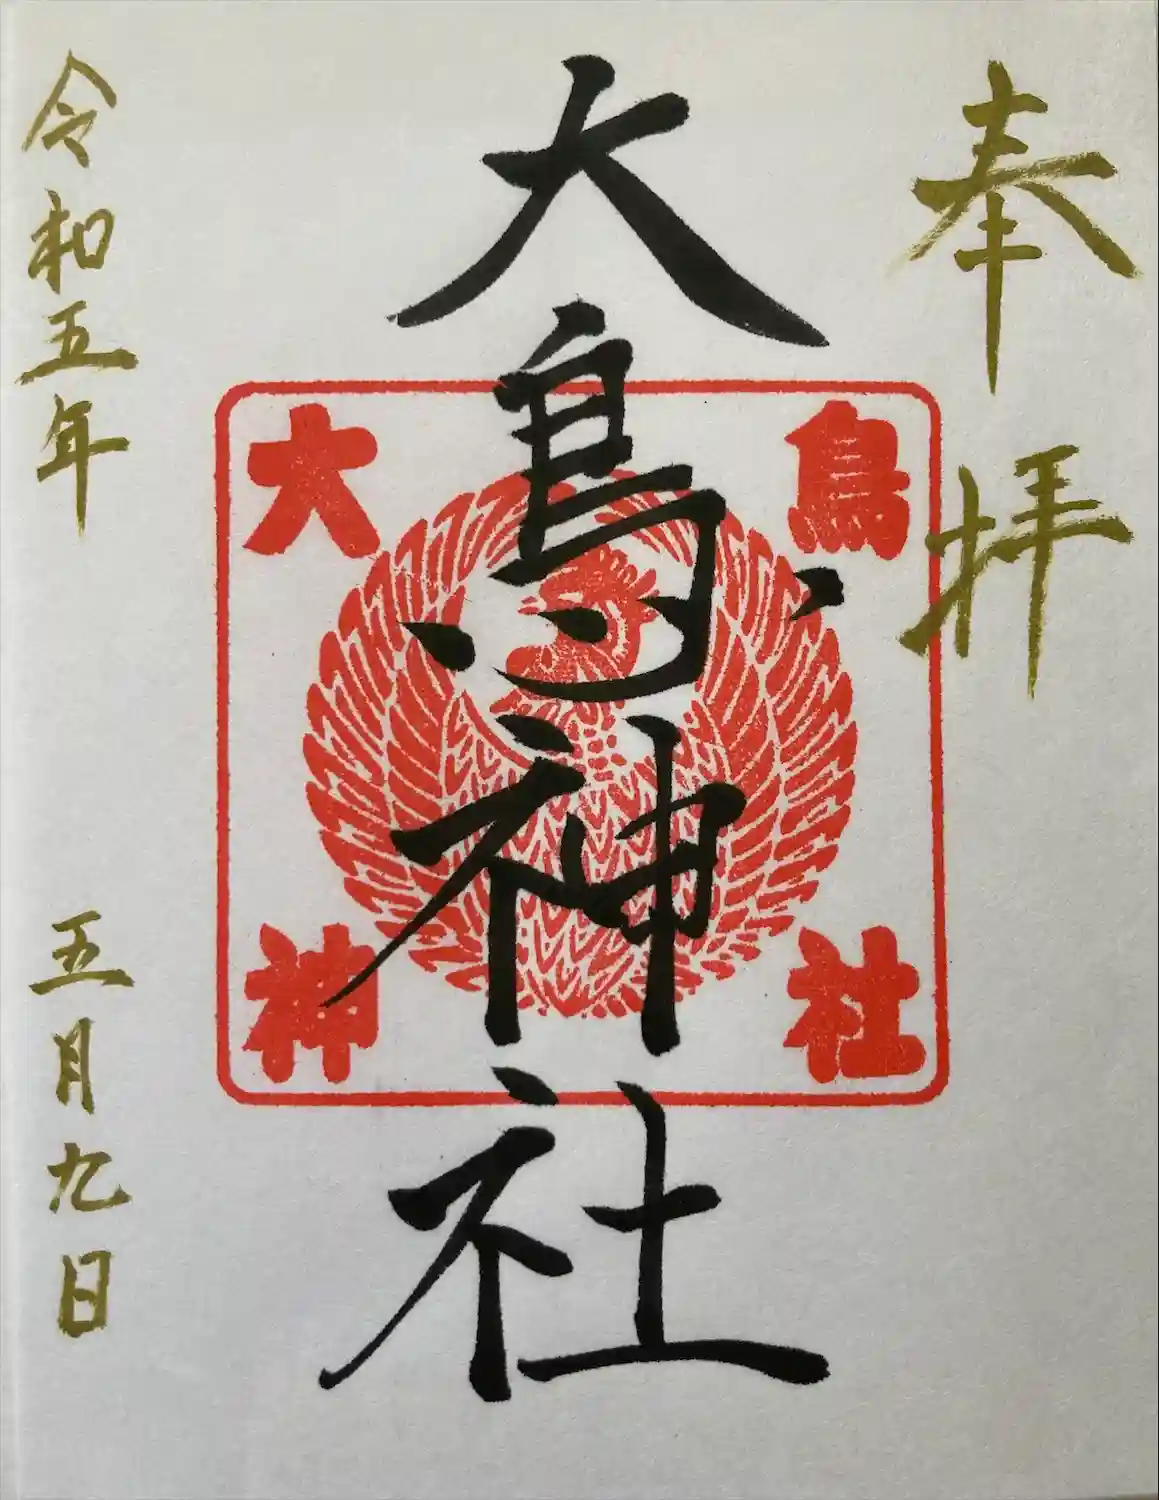 奉拝
大鳥神社
大鳥
神社
令和五年 五月九日